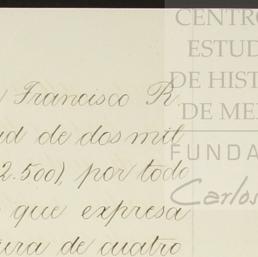 CENTRO
ESTUD
DE HIST
DE ME
FUNDA
Carlos
Francisco R.
ud de dos mil
2.500), por todo
que expresa
ura de cuatro